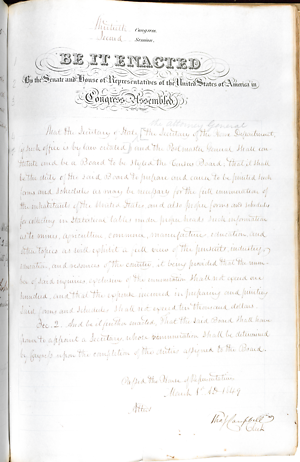 Thirtieth Congress
Second Session
BE IT ENACTED
By the Senate and House of Representatives of the United States of America in
Congress Assembled,
the Attorney General
That the Secretary of State, the Secretary of the
by law created, and the Postmaster General shall con-
stitute and be a Board to be styled the Census Board; that it shall
be the duty of the said Board to prepare and cause to be printed such
forms and schedules as may be necessary for the full enumeration of
the inhabitants of the United States and also proper forms and schedules
for collecting in statistical tables under proper heads such information
as to mines, agriculture, commerce, manufactures, education and
other topics as will exhibit a full view of the pursuits, industry,
education, and resources of the country, it being provided that the num-
ber of said inquiries exclusive of the enumeration shall not exceed one
hundred and that the expense incurred in preparing and printing
said forms and schedules shall not exceed ten thousand dollars.
Sec. 2. And be it further enacted, That the said Board shall have
power to appoint a Secretary whose remuneration shall be determined
by Congress upon the completion of the duties assigned to the Board.
Passed the House of Representatives
March 1 1849
Attest
Tho J Campbell
Clerk